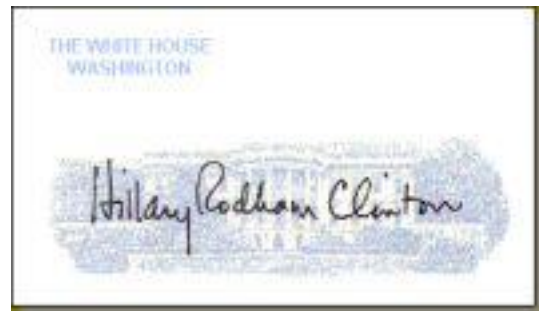 THE WHITE HOUSE
WASHINGTON
Hillary Rodham Clinton